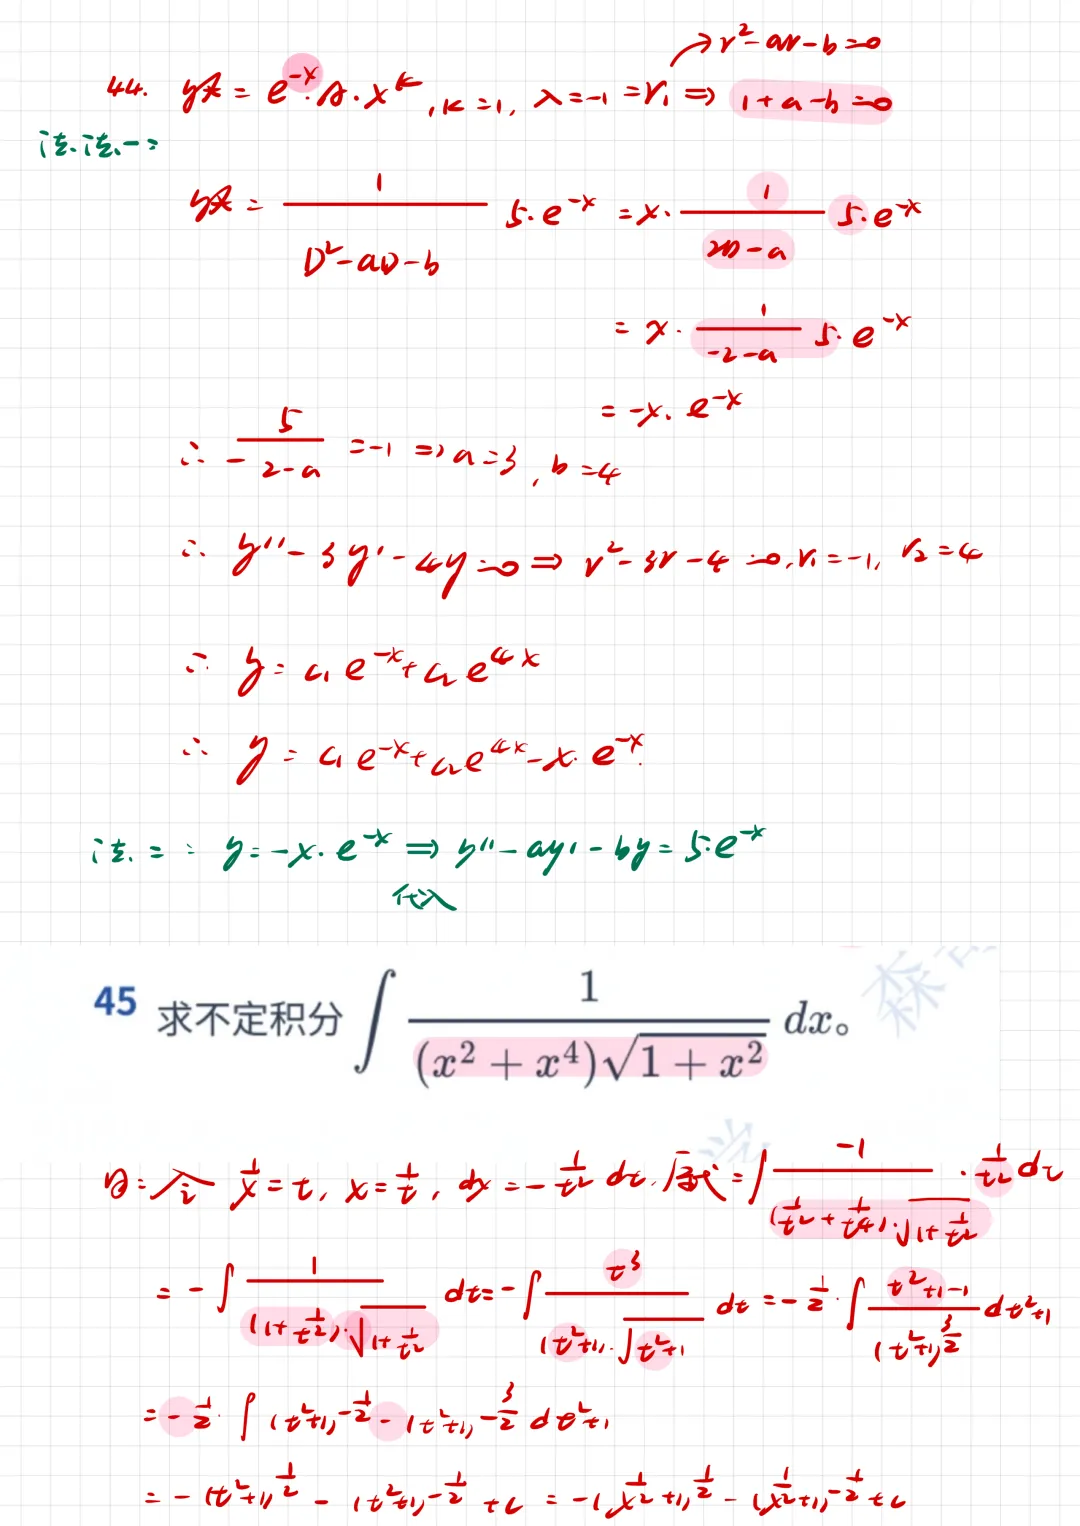 r²-ar-b=0
44. y* = e^{-x}·A·x^k, k=1, λ=-1=r₁ ⇒ 1+a-b=0
法一:
y* = \frac{1}{D²-aD-b} 5·e^{-x} = x·\frac{1}{2D-a} 5·e^{-x}
= x·\frac{1}{-2-a} 5·e^{-x}
= -x·e^{-x}
∴ \frac{5}{-2-a} = -1 ⇒ a=3, b=4
∴ y''-3y'-4y=0 ⇒ r²-3r-4=0, r₁=-1, r₂=4
∴ y = c₁e^{-x}+c₂e^{4x}
∴ y = c₁e^{-x}+c₂e^{4x}-x·e^{-x}
法二: y=-x·e^{-x} ⇒ y''-ay'-by=5·e^{-x}
代入
45 求不定积分 ∫ \frac{1}{(x²+x⁴)\sqrt{1+x²}} dx。
森
令 \frac{1}{x}=t, x=\frac{1}{t}, dx=-\frac{1}{t²}dt, 原式=∫\frac{-1}{(\frac{1}{t²}+\frac{1}{t⁴})·\sqrt{1+\frac{1}{t²}}}·\frac{1}{t²}dt
= -∫\frac{1}{(1+\frac{1}{t²})·\sqrt{1+\frac{1}{t²}}}dt = -∫\frac{t³}{(t²+1)·\sqrt{t²+1}}dt = -\frac{1}{2}·∫\frac{t²+1-1}{(t²+1)^{\frac{3}{2}}}dt²+1
= -\frac{1}{2}·∫(t²+1)^{-\frac{1}{2}}-(t²+1)^{-\frac{3}{2}}dt²+1
= -(t²+1)^{\frac{1}{2}}-(t²+1)^{-\frac{1}{2}}+c = -(\frac{1}{x²}+1)^{\frac{1}{2}}-(\frac{1}{x²}+1)^{-\frac{1}{2}}+c